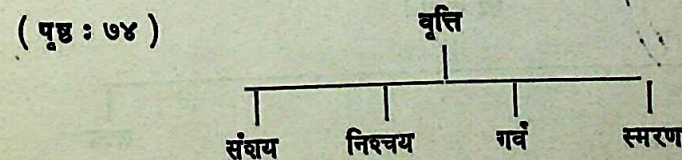 ( पृष्ठ : ७४ )
वृत्ति
संशय निश्चय गर्व स्मरण